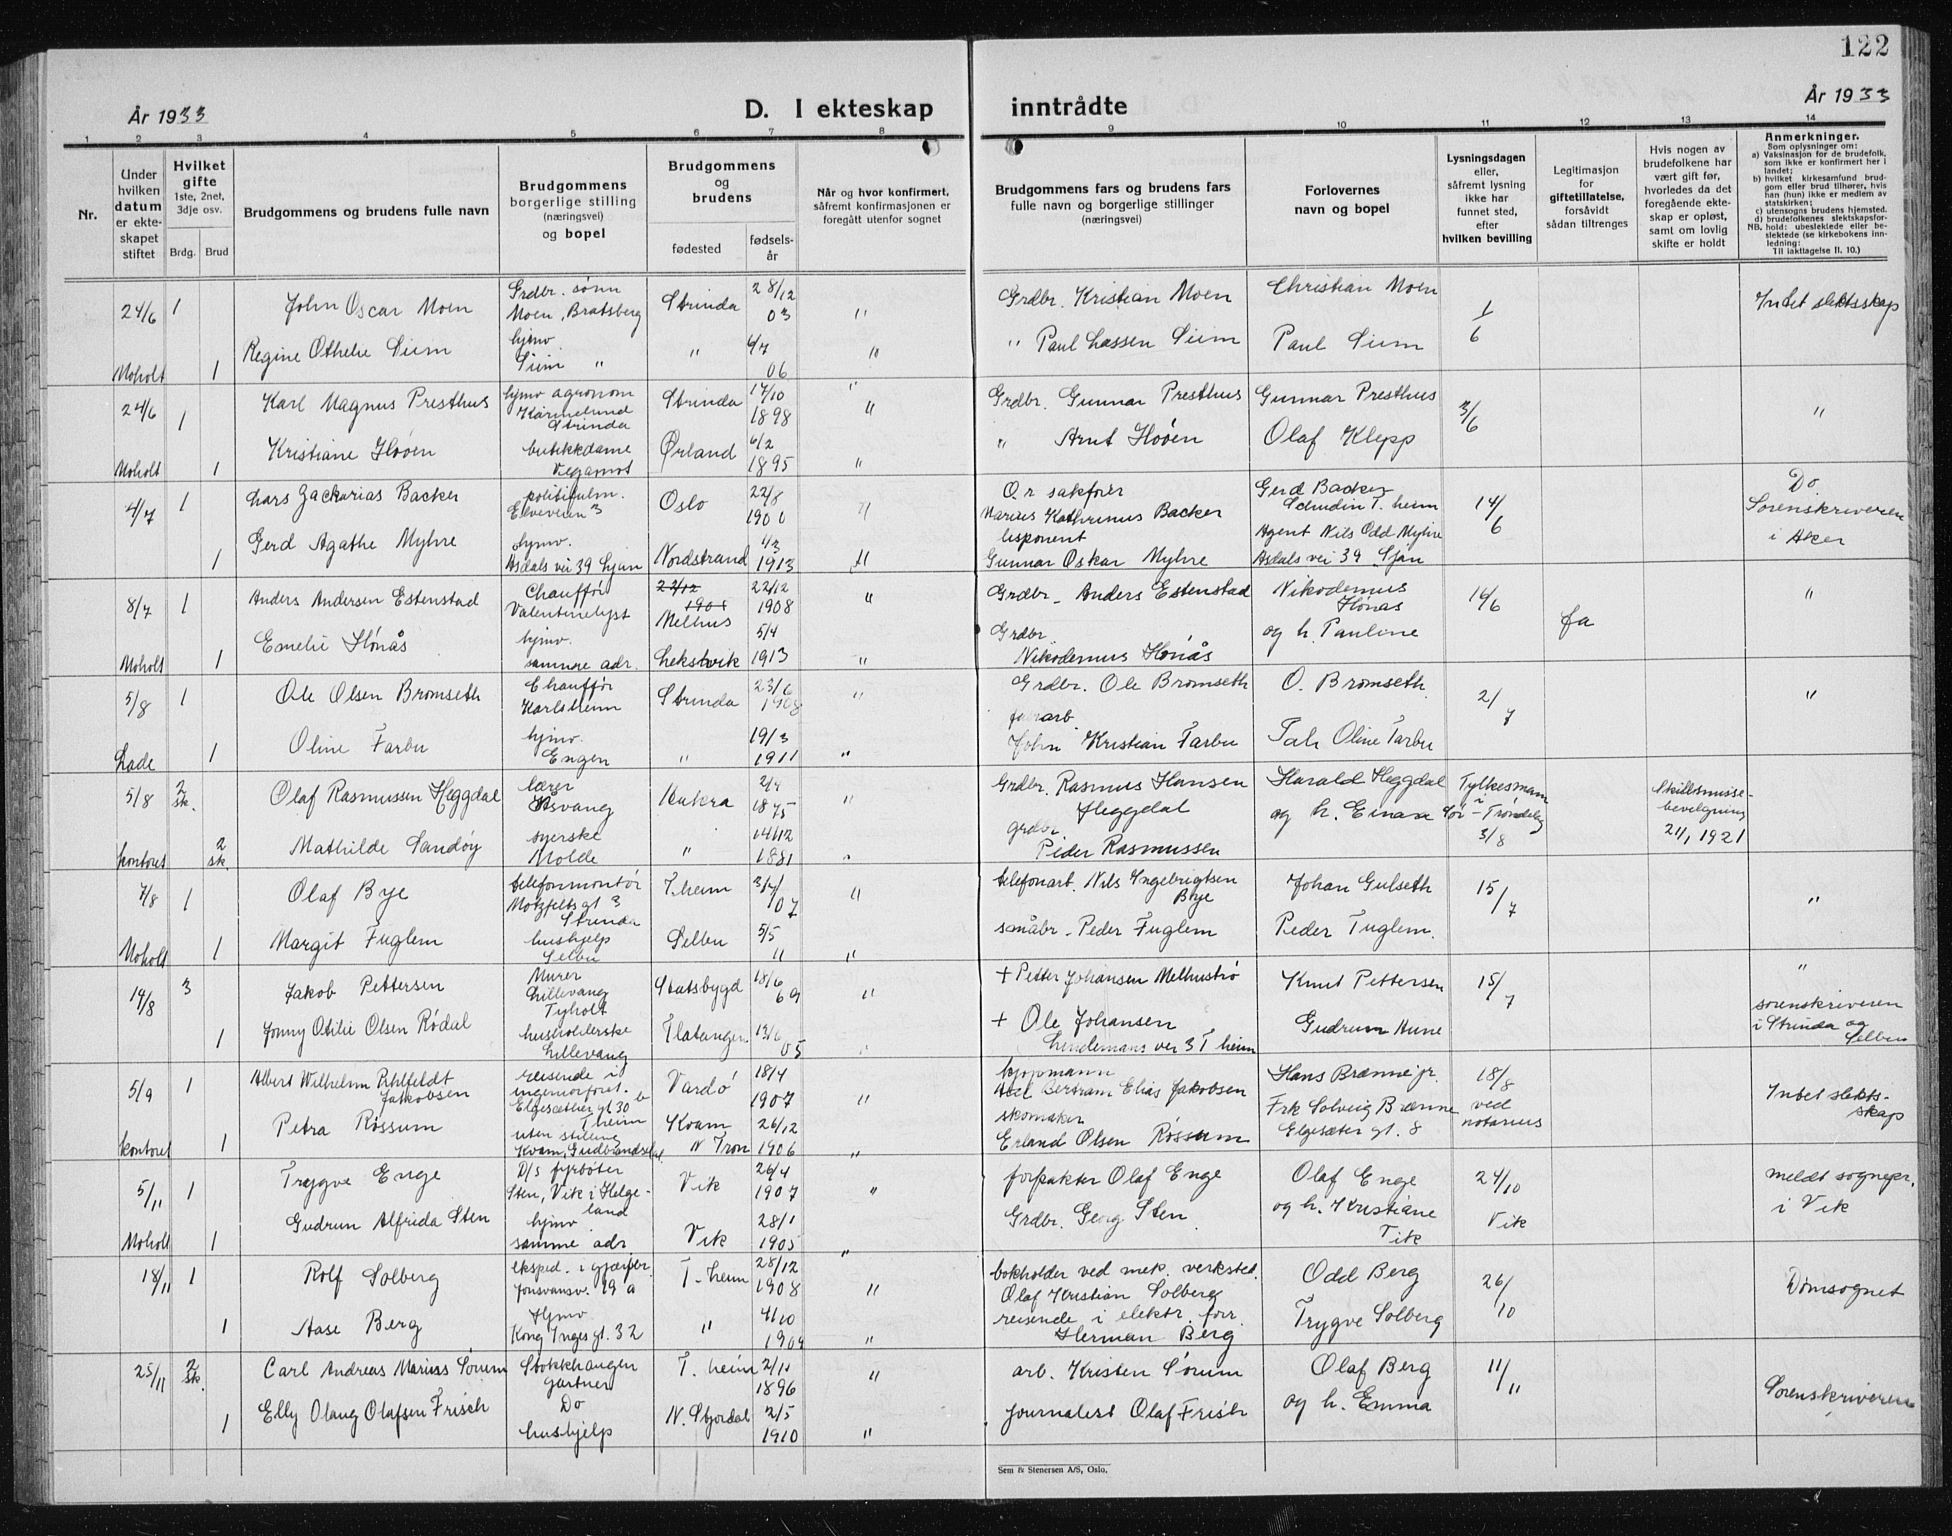 122
År 1933
D. I ekteskap inntrådte
År 1933
1 2 3 4 5 6 7 8 9 10 11 12 13 14
Nr.
Under hvilken datum er ekteskapet stiftet
Hvilket gifte 1ste, 2net, 3dje osv.
Brdg. Brud
Brudgommens og brudens fulle navn
Brudgommens borgerlige stilling (næringsvei) og bopel
Brudgommens og brudens
fødested
fødselsår
Når og hvor konfirmert, såfremt konfirmasjonen er foregått utenfor sognet
Brudgommens fars og brudens fars fulle navn og borgerlige stillinger (næringsvei)
Forlovernes navn og bopel
Lysningsdagen eller, såfremt lysning ikke har funnet sted, efter hvilken bevilling
Legitimasjon for giftetillatelse, forsåvidt sådan tiltrenges
Hvis nogen av brudefolkene har vært gift før, hvorledes da det foregående ekteskap er opløst, samt om lovlig skifte er holdt
Anmerkninger.
Som oplysninger om:
a) Vaksinasjon for de brudefolk, som ikke er konfirmert her i landet;
b) hvilket kirkesamfund brudgom eller brud tilhører, hvis han (hun) ikke er medlem av statskirken;
c) utensogns brudens hjemsted.
d) brudefolkenes slektskapsforhold: ubeslektede eller beslektede (se kirkebokens innledning:
NB. Til iakttagelse II. 10.)
24/6 1 John Oscar Moen Grdbr. sønn Moen, Bratsberg Strinda 28/12 03 " Grdbr. Kristian Moen Christian Moen 1/6 Intet slektsskap
Moholt 1 Regine Othelie Siem hjmv. Siem " " 4/7 06 " " Paul Lassen Siem Paul Siem
24/6 1 Karl Magnus Presthus hjmv agronom Karinelund Strinda Strinda 17/10 1898 " Grdbr. Gunnar Presthus Gunnar Presthus 3/6 "
Moholt 1 Kristiane Hoøen butikkdame Vegamot Ørland 6/2 1895 " " Arnt Hoøen Olaf Klepp
4/7 1 Lars Zackarias Backer politifulm. Elveveien 3 Oslo 22/8 1900 " O.r. sakfører Marius Kathrinus Backer Gerd Backer T. heim 14/6 Do Sorenskriveren i Aker
1 Gerd Agathe Myhre hjmv. Asdals vei 39 Ljan Nordstrand 4/3 1913 " disponent Gunnar Oskar Myhre Agent Nils Odd Myhre Asdals vei 39 Ljan
8/7 1 Anders Andersen Estenstad Chauffør Valentinelyst 22/12 1901 Melhus 22/12 1908 " Grdbr. Anders Estenstad Nikodemus Hønås 16/6 fa "
Moholt 1 Emelie Hønås hjmv. samme adr. Lekstvik 5/4 1913 " Grdbr. Nikodemus Hønås og h. Pauline
5/8 1 Ole Olsen Bromseth Chauffør Karlsheim Strinda 23/6 1908 " Grdbr. Ole Bromseth O. Bromseth 2/7 "
Lade 1 Oline Farbu hjmv. Engen " 19/3 1911 " John Kristian Farbu Oline Farbu
5/8 2 sk. Olaf Rasmussen Heggdal lærer Åsvang Aukra 2/4 1875 " Grdbr. Rasmus Hansen Heggdal Harald Heggdal Fylkesmann i Sør-Trøndelag 3/8 Skilsmissebevilgning 2/1, 1921
kontoret 2 sk. Mathilde Sandøy syerske Molde " 14/12 1881 " grdbr. Peder Rasmussen og h. Einara
7/8 1 Olaf Bye telefonmontør Motzfeltsgt 3 Strinda T.heim 3/7 07 " telefonarb. Nils Ingebrigtsen Bye Johan Gulseth 15/7 "
Moholt 1 Margit Fuglem hushjelp Selbu Selbu 5/5 11 " småbr. Peder Fuglem Peder Fuglem.
14/8 3 Jakob Pettersen Murer Lillevang Tyholt Statsbygd 18/6 69 " + Petter Johansen Melhustrø Knut Pettersen 15/7 " sorenskriveren i Strinda og Selbu
1 Jonny Otilie Olsen Rødal husholderske Lillevang Flatanger 05 + Ole Johansen Lindemans vei 3 T heim Gudrun Aune
5/9 1 Albert Wilhelm Pihlfeldt Jakobsen reisende i ingeniørforret. Elgesæther gt 30 b T.heim Vardø 18/4 1907 " kjøpmann Axel Bertram Elias Jakobsen Hans Brænne jr. 18/8 ved notarius Intet slektsskap
kontoret 1 Petra Rossum uten stilling Kvam, Gudbrandsdal Kvam N Fron 26/12 1906 " skomaker Erland Olsen Rossum Frk Solveig Brænne Elgesæter gt. 8
5/11 1 Trygve Enge D/s fyrbøter Sten, Vik i Helgeland Vik 26/4 1907 " forpakter Olaf Enge Olaf Enge 24/10 Vik meldt sognepr. i Vik
Moholt 1 Gudrun Alfrida Sten hjmv. samme adr. Vik 28/1 1905 " Grdbr. Georg Sten og h. Kristiane Vik
18/11 1 Rolf Solberg eksped. i Jonsvansv. 19 a T.heim 28/12 1908 " bokholder ved mek. verksted. Olaf Kristian Solberg Odd Berg 26/10 Domsognet
1 Aase Berg Hjmv Kong Inges gt. 32 " 4/10 1909 " reisende i elektr. forr. Herman Berg Trygve Solberg
25/11 2 sk. Carl Andreas Marius Sørum Stokkhaugen gartner T. heim 2/11 1896 " arb. Kristen Sørum Olaf Berg 11/11 Sorenskriveren
1 Elly Olaug Olafsen Frisch Do hushjelp N. Stjørdal 2/5 1910 " journalist Olaf Frisch og h. Emma
Sem & Stenersen A/S, Oslo.